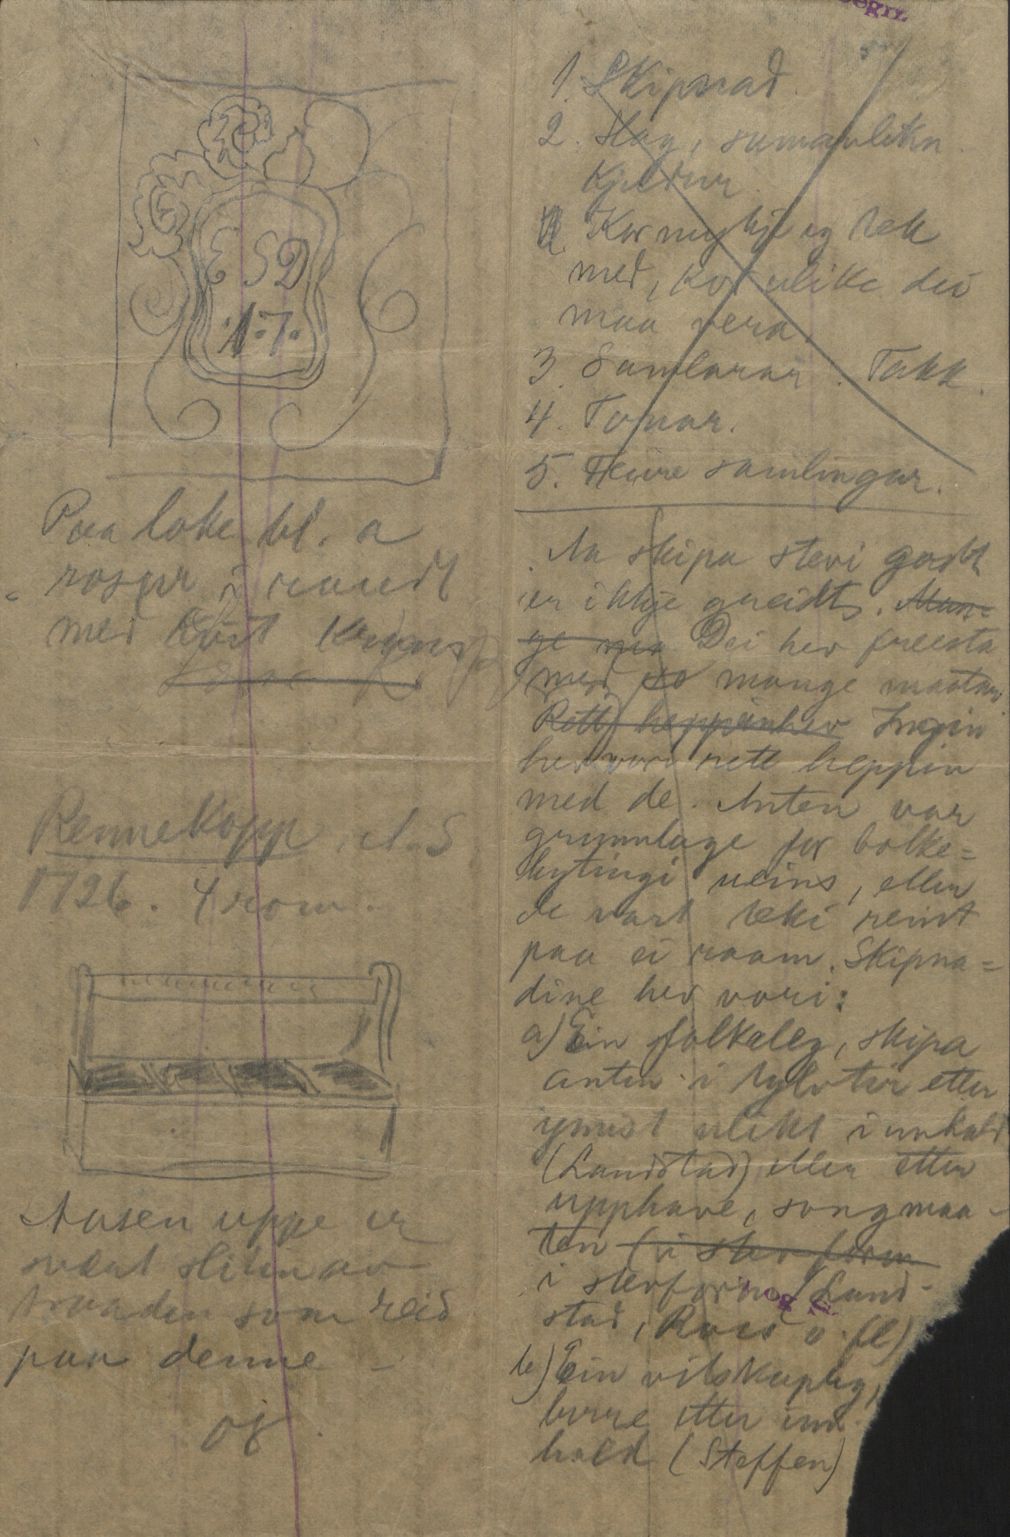 E S D
. 1 . 7 .
Paa loke bl. a
roser i raudt
med kvit
Rennekopp. A.S
1726. 4 rom.
Aasen uppe er
svært sliten av
traaden som reid
paa denne –
oj.
1. Skipnad.
2. Slag, samanlikn.
Kjeldur.
Kor mykje eg tek
med, kor ulike dei
maa vera.
3. Samlarar. Takk.
4. Tonar.
5. Fleire samlingar.
Aa skipa stevi godt
er ikkje greidt. Man-
ge Dei hev freista
med so mange maatar.
Rett heppin hev Ingin
hev vori rett heppin
med de. Anten var
grunnlage for bolke=
bytingi veins, eller
de vart teki reint
paa ei raam. Skipna=
dine hev vori:
a) Ein folkeleg, skipa
anten i tylvtir etter
ymist ulikt innhald
(Landstad) eller etter
upphave, songmaa-
ten (i stevform
i stevform (Land-
stad, Ross o. fl)
b) Ein vitskapleg,
berre etter inn-
hald (Steffen)